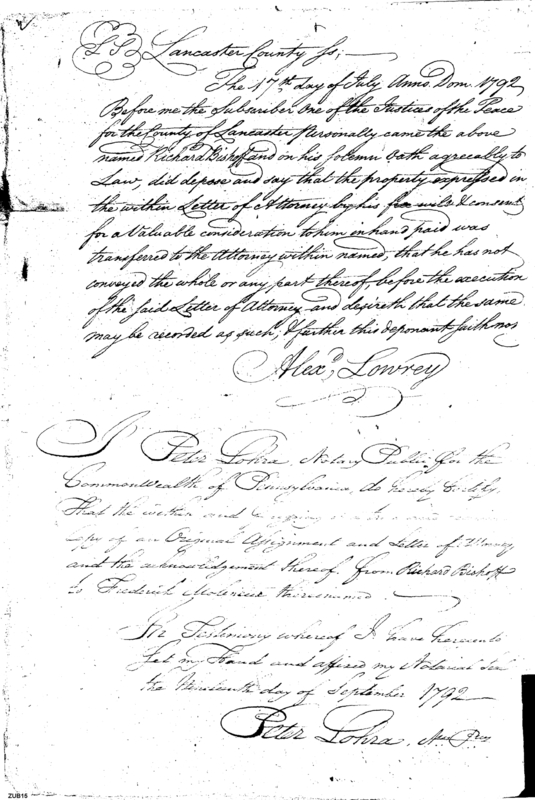 L S Lancaster County Ss;
The 17th day of July Anno. Dom. 1792
Before me the Subscriber One of the Justices of the Peace
for the County of Lancaster Personally came the above
named Richard Bishoff and on his solemn Oath agreeably to
Law, did depose and say that the property expressed in
the within Letter of Attorney by his free will & consent
for a Valuable consideration to him in hand paid was
transferred to the Attorney within named, that he has not
conveyed the whole or any part thereof before the execution
of the said Letter of Attorney and desireth that the same
may be recorded as such, & farther this deponant saith not
Alexd. Lowrey
I Peter Lohra, Notary Public, for the
Commonwealth of Pennsylvania, do hereby Certify
That the within and
copy of an Original Assignment and Letter of Attorney
and the acknowledgement thereof from Richard Bishoff
to Frederick therein named
In Testimony whereof I have hereunto
set my Hand and affixed my Notarial Seal
the Nineteenth day of September 1792
Peter Lohra,
ZUB15